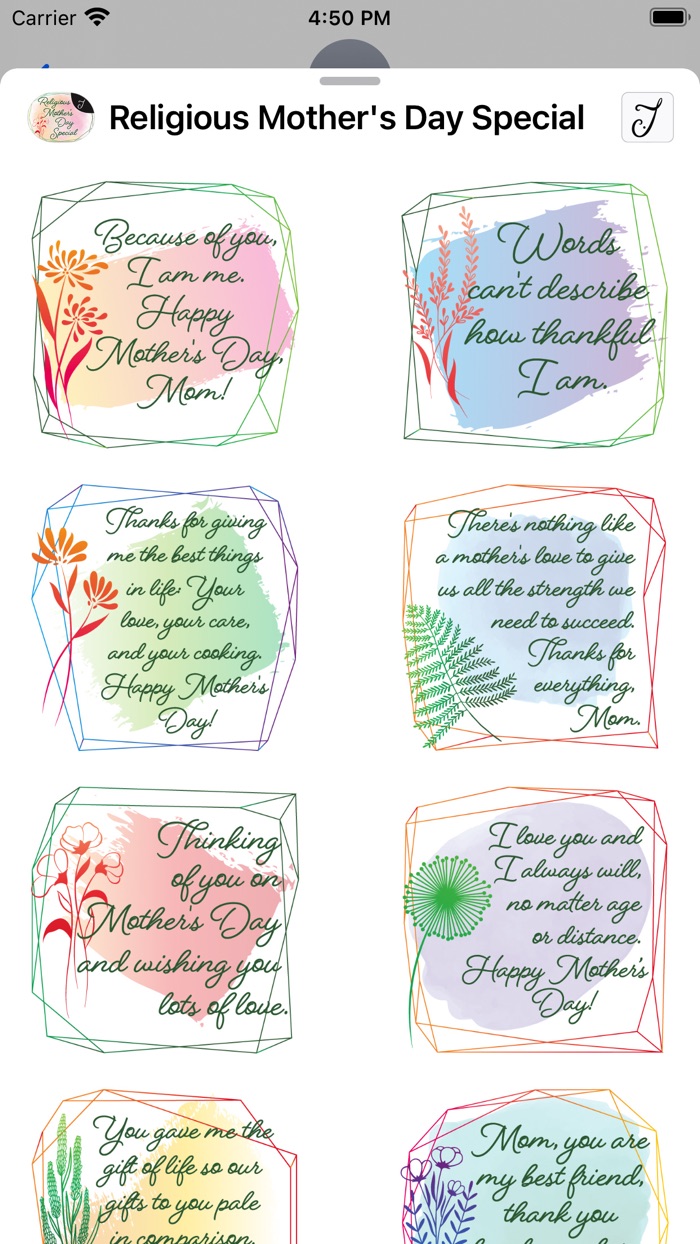 Carrier
4:50 PM
Religious
Mother's
Day
Special
J
Religious Mother's Day Special
J
Because of you,
I am me.
Happy
Mother's Day,
Mom!
Words
can't describe
how thankful
I am.
Thanks for giving
me the best things
in life: Your
love, your care,
and your cooking.
Happy Mother's
Day!
There's nothing like
a mother's love to give
us all the strength we
need to succeed.
Thanks for
everything,
Mom.
Thinking
of you on
Mother's Day
and wishing you
lots of love.
I love you and
I always will,
no matter age
or distance.
Happy Mother's
Day!
You gave me the
gift of life so our
gifts to you pale
in comparison.
Mom, you are
my best friend,
thank you